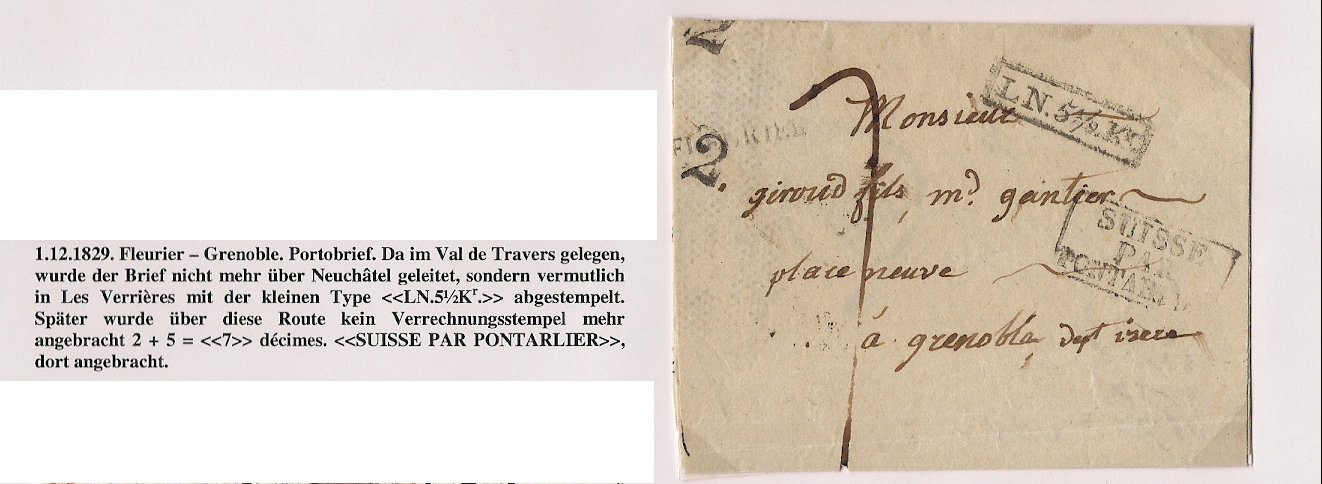 1.12.1829. Fleurier – Grenoble. Portobrief. Da im Val de Travers gelegen,
wurde der Brief nicht mehr über Neuchâtel geleitet, sondern vermutlich
in Les Verrières mit der kleinen Type <<LN.5½Kr.>> abgestempelt.
Später wurde über diese Route kein Verrechnungsstempel mehr
angebracht 2 + 5 = <<7>> décimes. <<SUISSE PAR PONTARLIER>>,
dort angebracht.
2
LN. 5½.Kr
FLEURIER
2
7
Monsieur
giroud fils, md. gantier
SUISSE
PAR
PONTARLIER
place neuve
á grenoble, dept isere